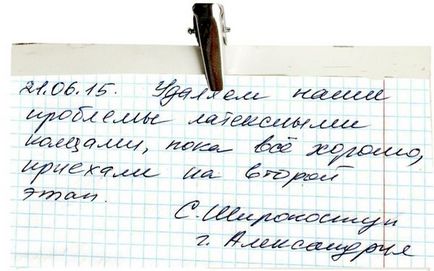 21.06.15. Удаляем наши
проблемы латексными
кольцами, пока всё хорошо,
приехали на второй
этап.
С. Широкоступ
г. Александрия